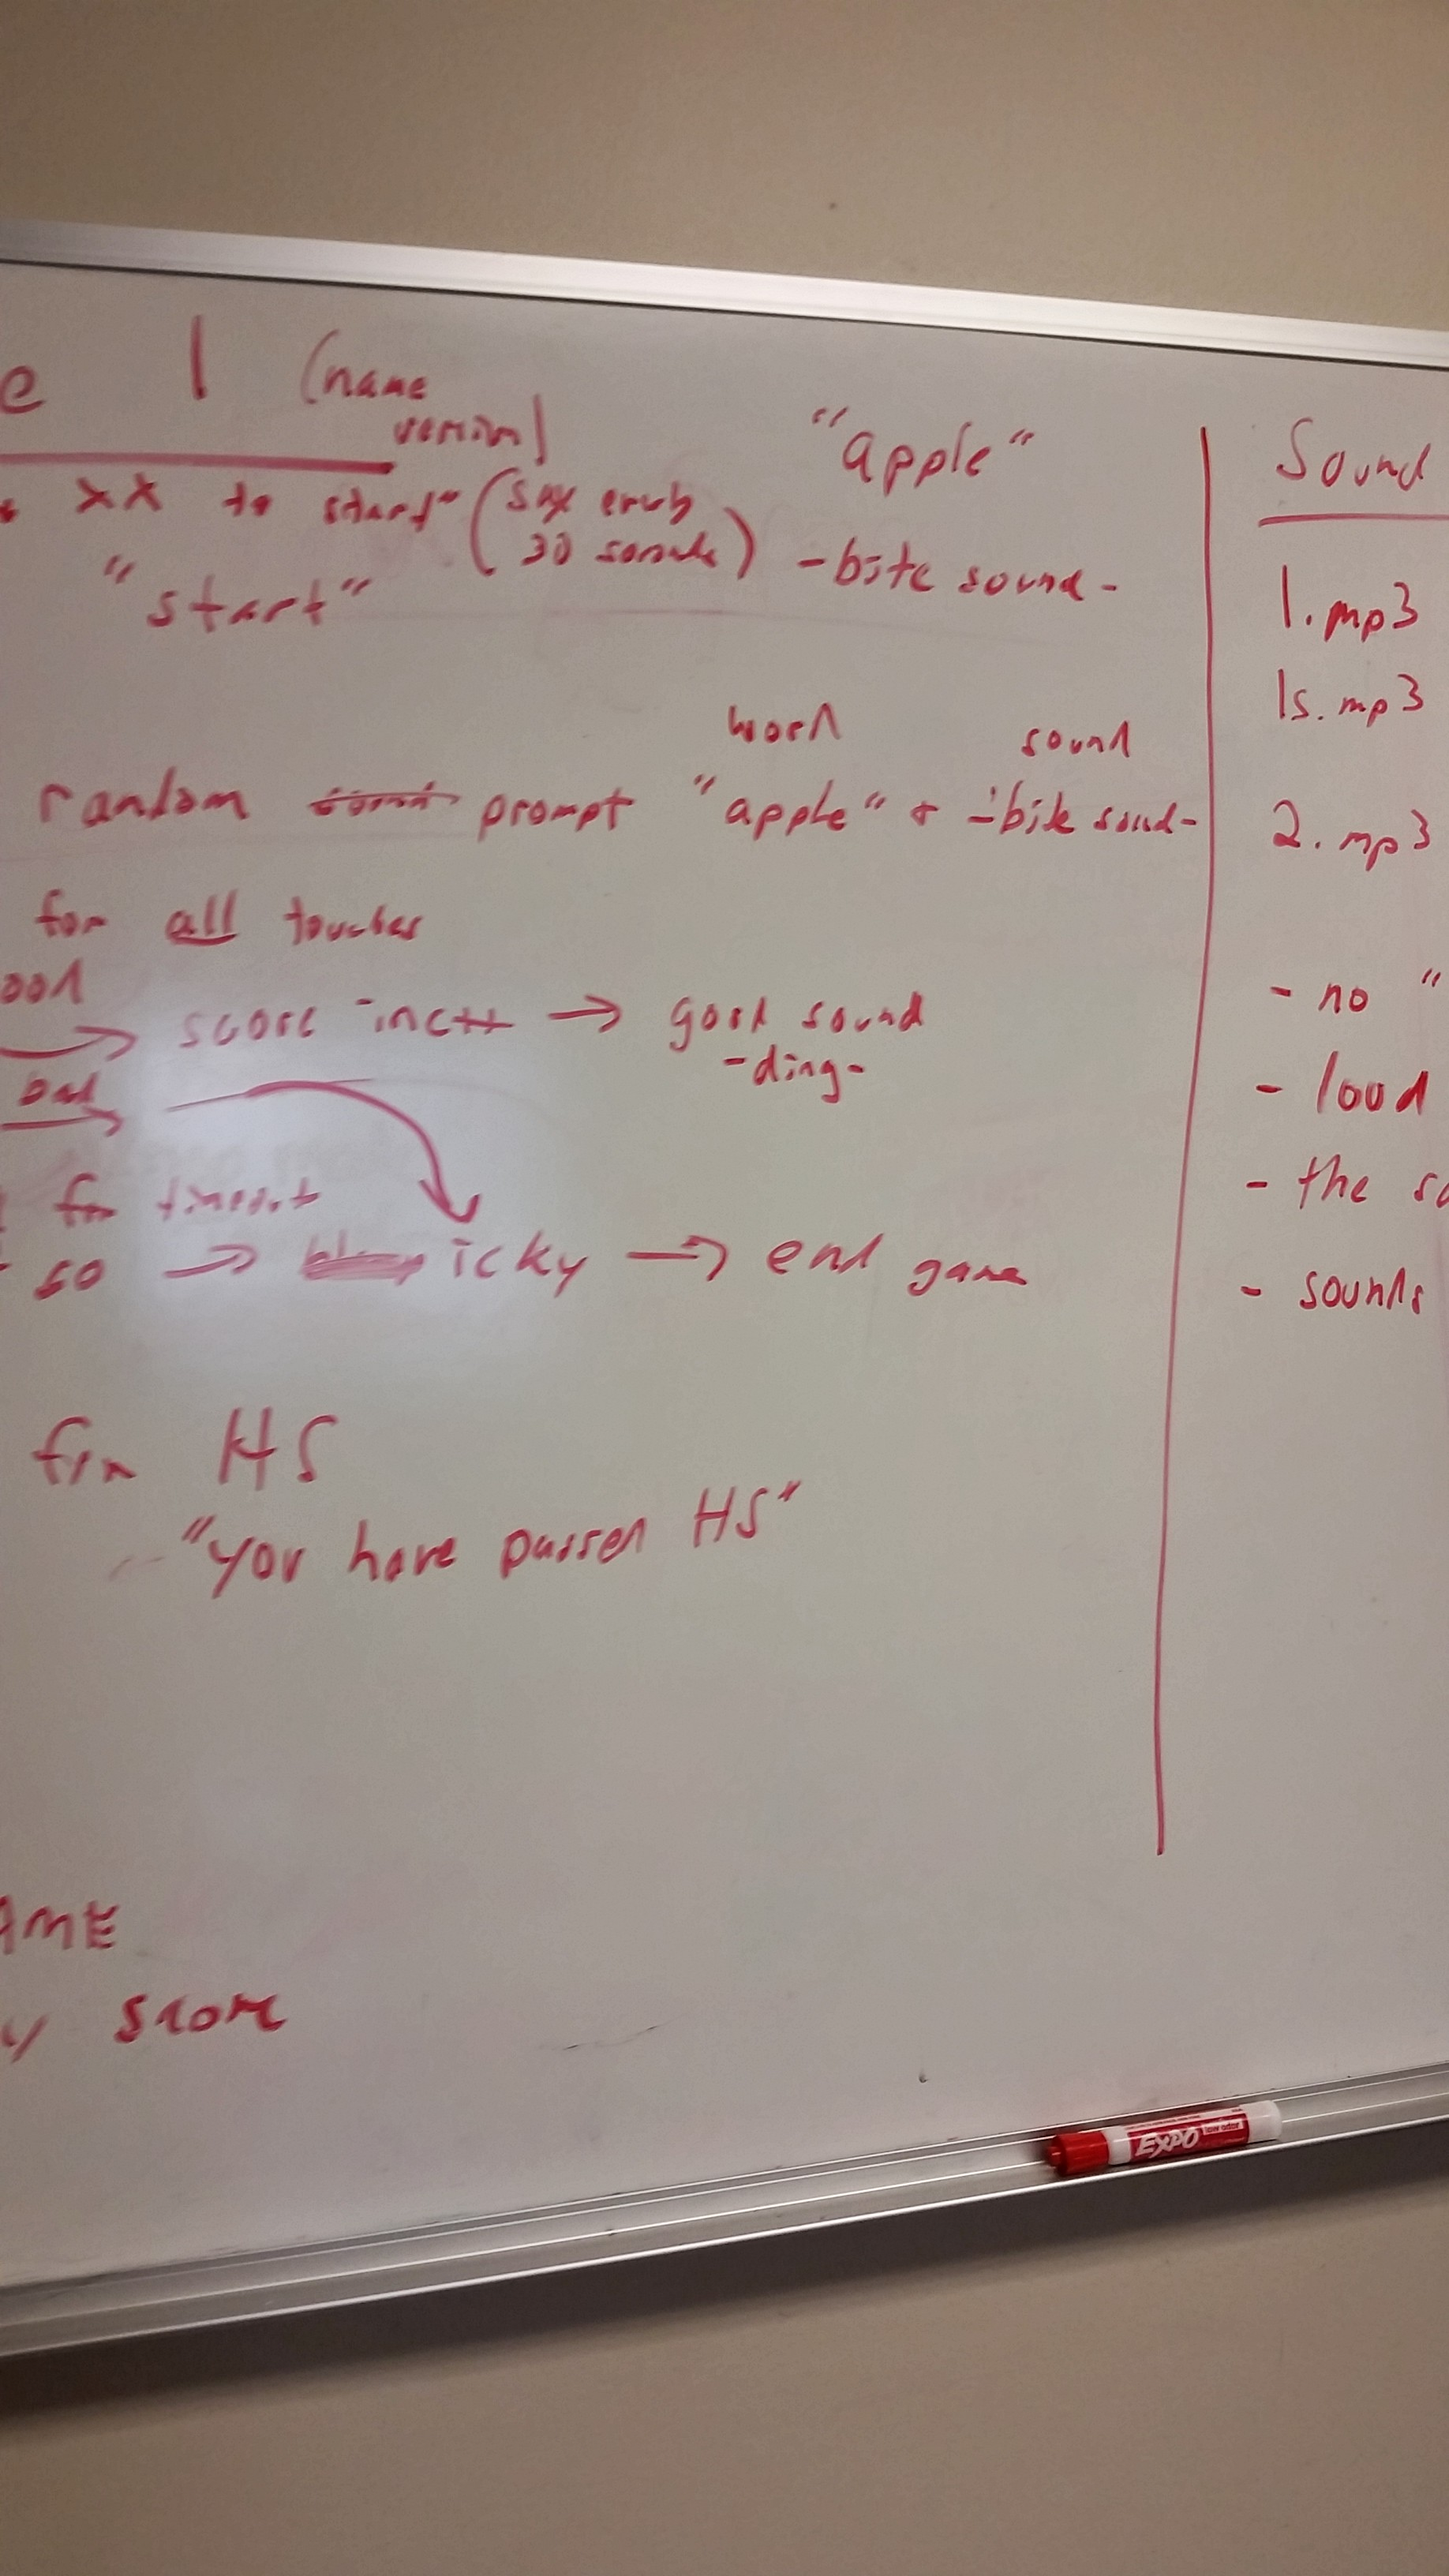 e 1 (name
version)
xx to start" (say every
30 seconds)
"start"
"apple"
-bite sound-
word sound
random sound prompt "apple" + -bite sound-
for all touches
ood
→ score inc++ → good sound
-ding-
bad
→
for timeout
so → icky → end game
for HS
"you have passed HS"
AME
y score
Sound
1.mp3
1s.mp3
2.mp3
- no "
- loud
- the so
- sounds
EXPO
low odor